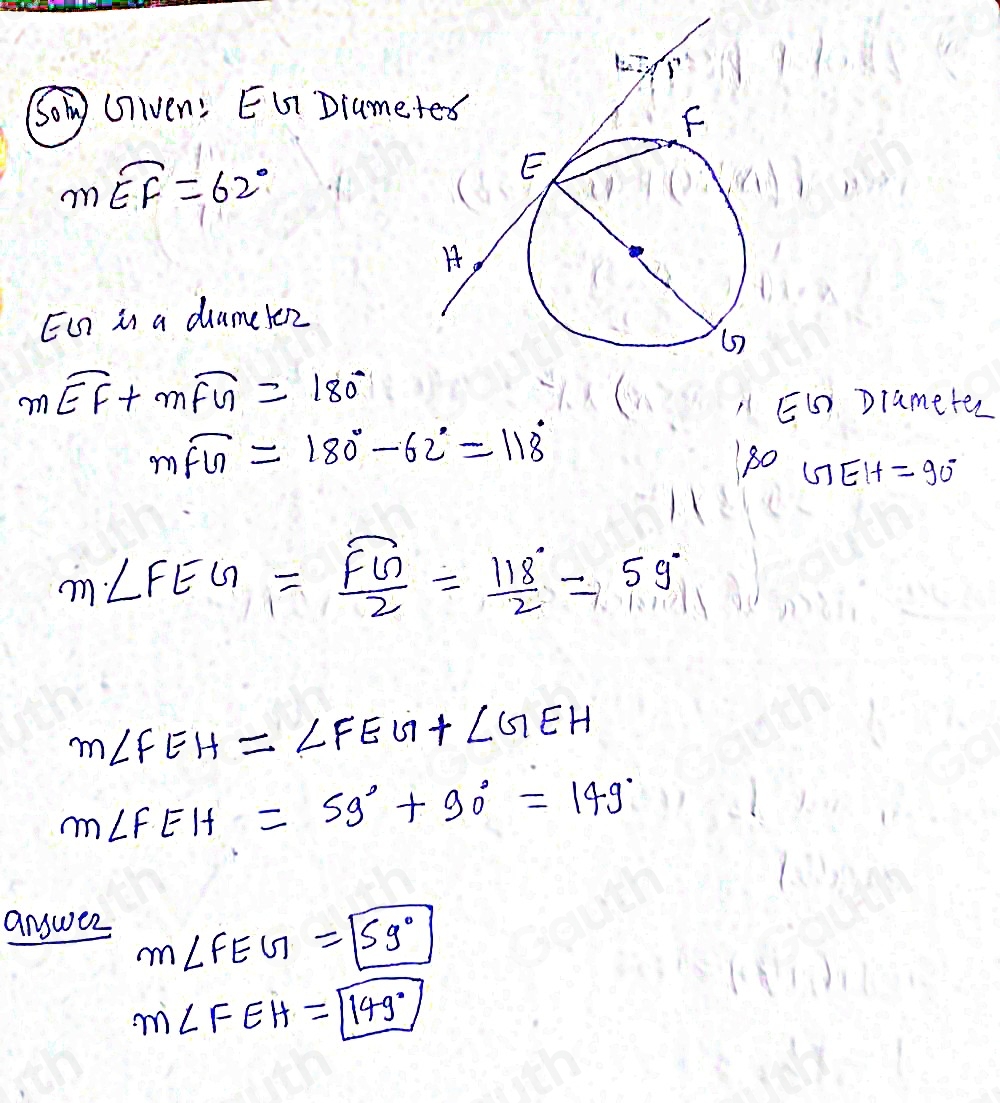 Soln Given: EG Diameter
m EF = 62°
E
F
H
G
EG is a diameter
m EF + m FG = 180°
m FG = 180° - 62° = 118°
EG Diameter
so GEH = 90°
m∠FEG = FG/2 = 118°/2 = 59°
m∠FEH = ∠FEG + ∠GEH
m∠FEH = 59° + 90° = 149°
answer
m∠FEG = 59°
m∠FEH = 149°